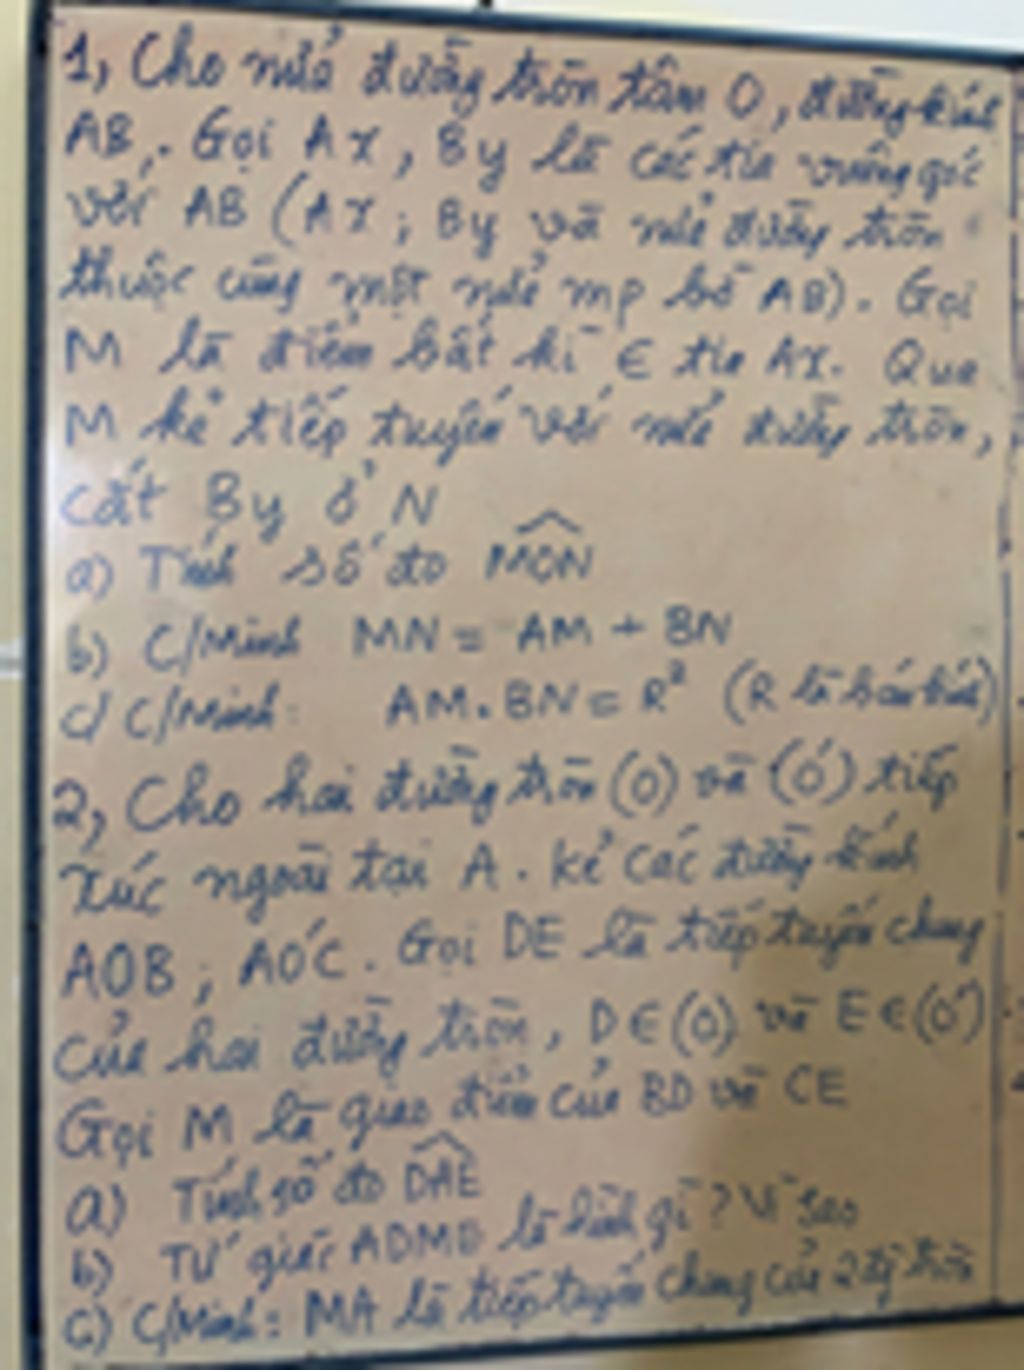 1, Cho nửa đường tròn tâm O, đường kính
AB. Gọi Ax, By là các tia vuông góc
với AB (Ax; By và nửa đường tròn
thuộc cùng một nửa mp bờ AB). Gọi
M là điểm bất kì ∈ tia Ax. Qua
M kẻ tiếp tuyến với nửa đường tròn,
cắt By ở N
a) Tính số đo \widehat{MON}
b) C/Minh MN = AM + BN
c/ C/Minh: AM.BN = R² (R là bán kính)
2, Cho hai đường tròn (O) và (O') tiếp
xúc ngoài tại A. Kẻ các đường kính
AOB; AO'C. Gọi DE là tiếp tuyến chung
của hai đường tròn, D∈(O) và E∈(O')
Gọi M là giao điểm của BD và CE
a) Tính số đo \widehat{DAE}
b) Tứ giác là hình gì? Vì sao
c) C/Minh: MA là tiếp tuyến chung của 2 tròn